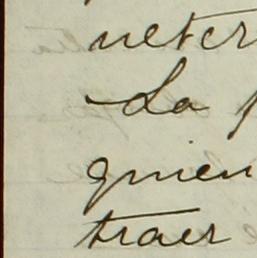 veter
La p
quien
traer